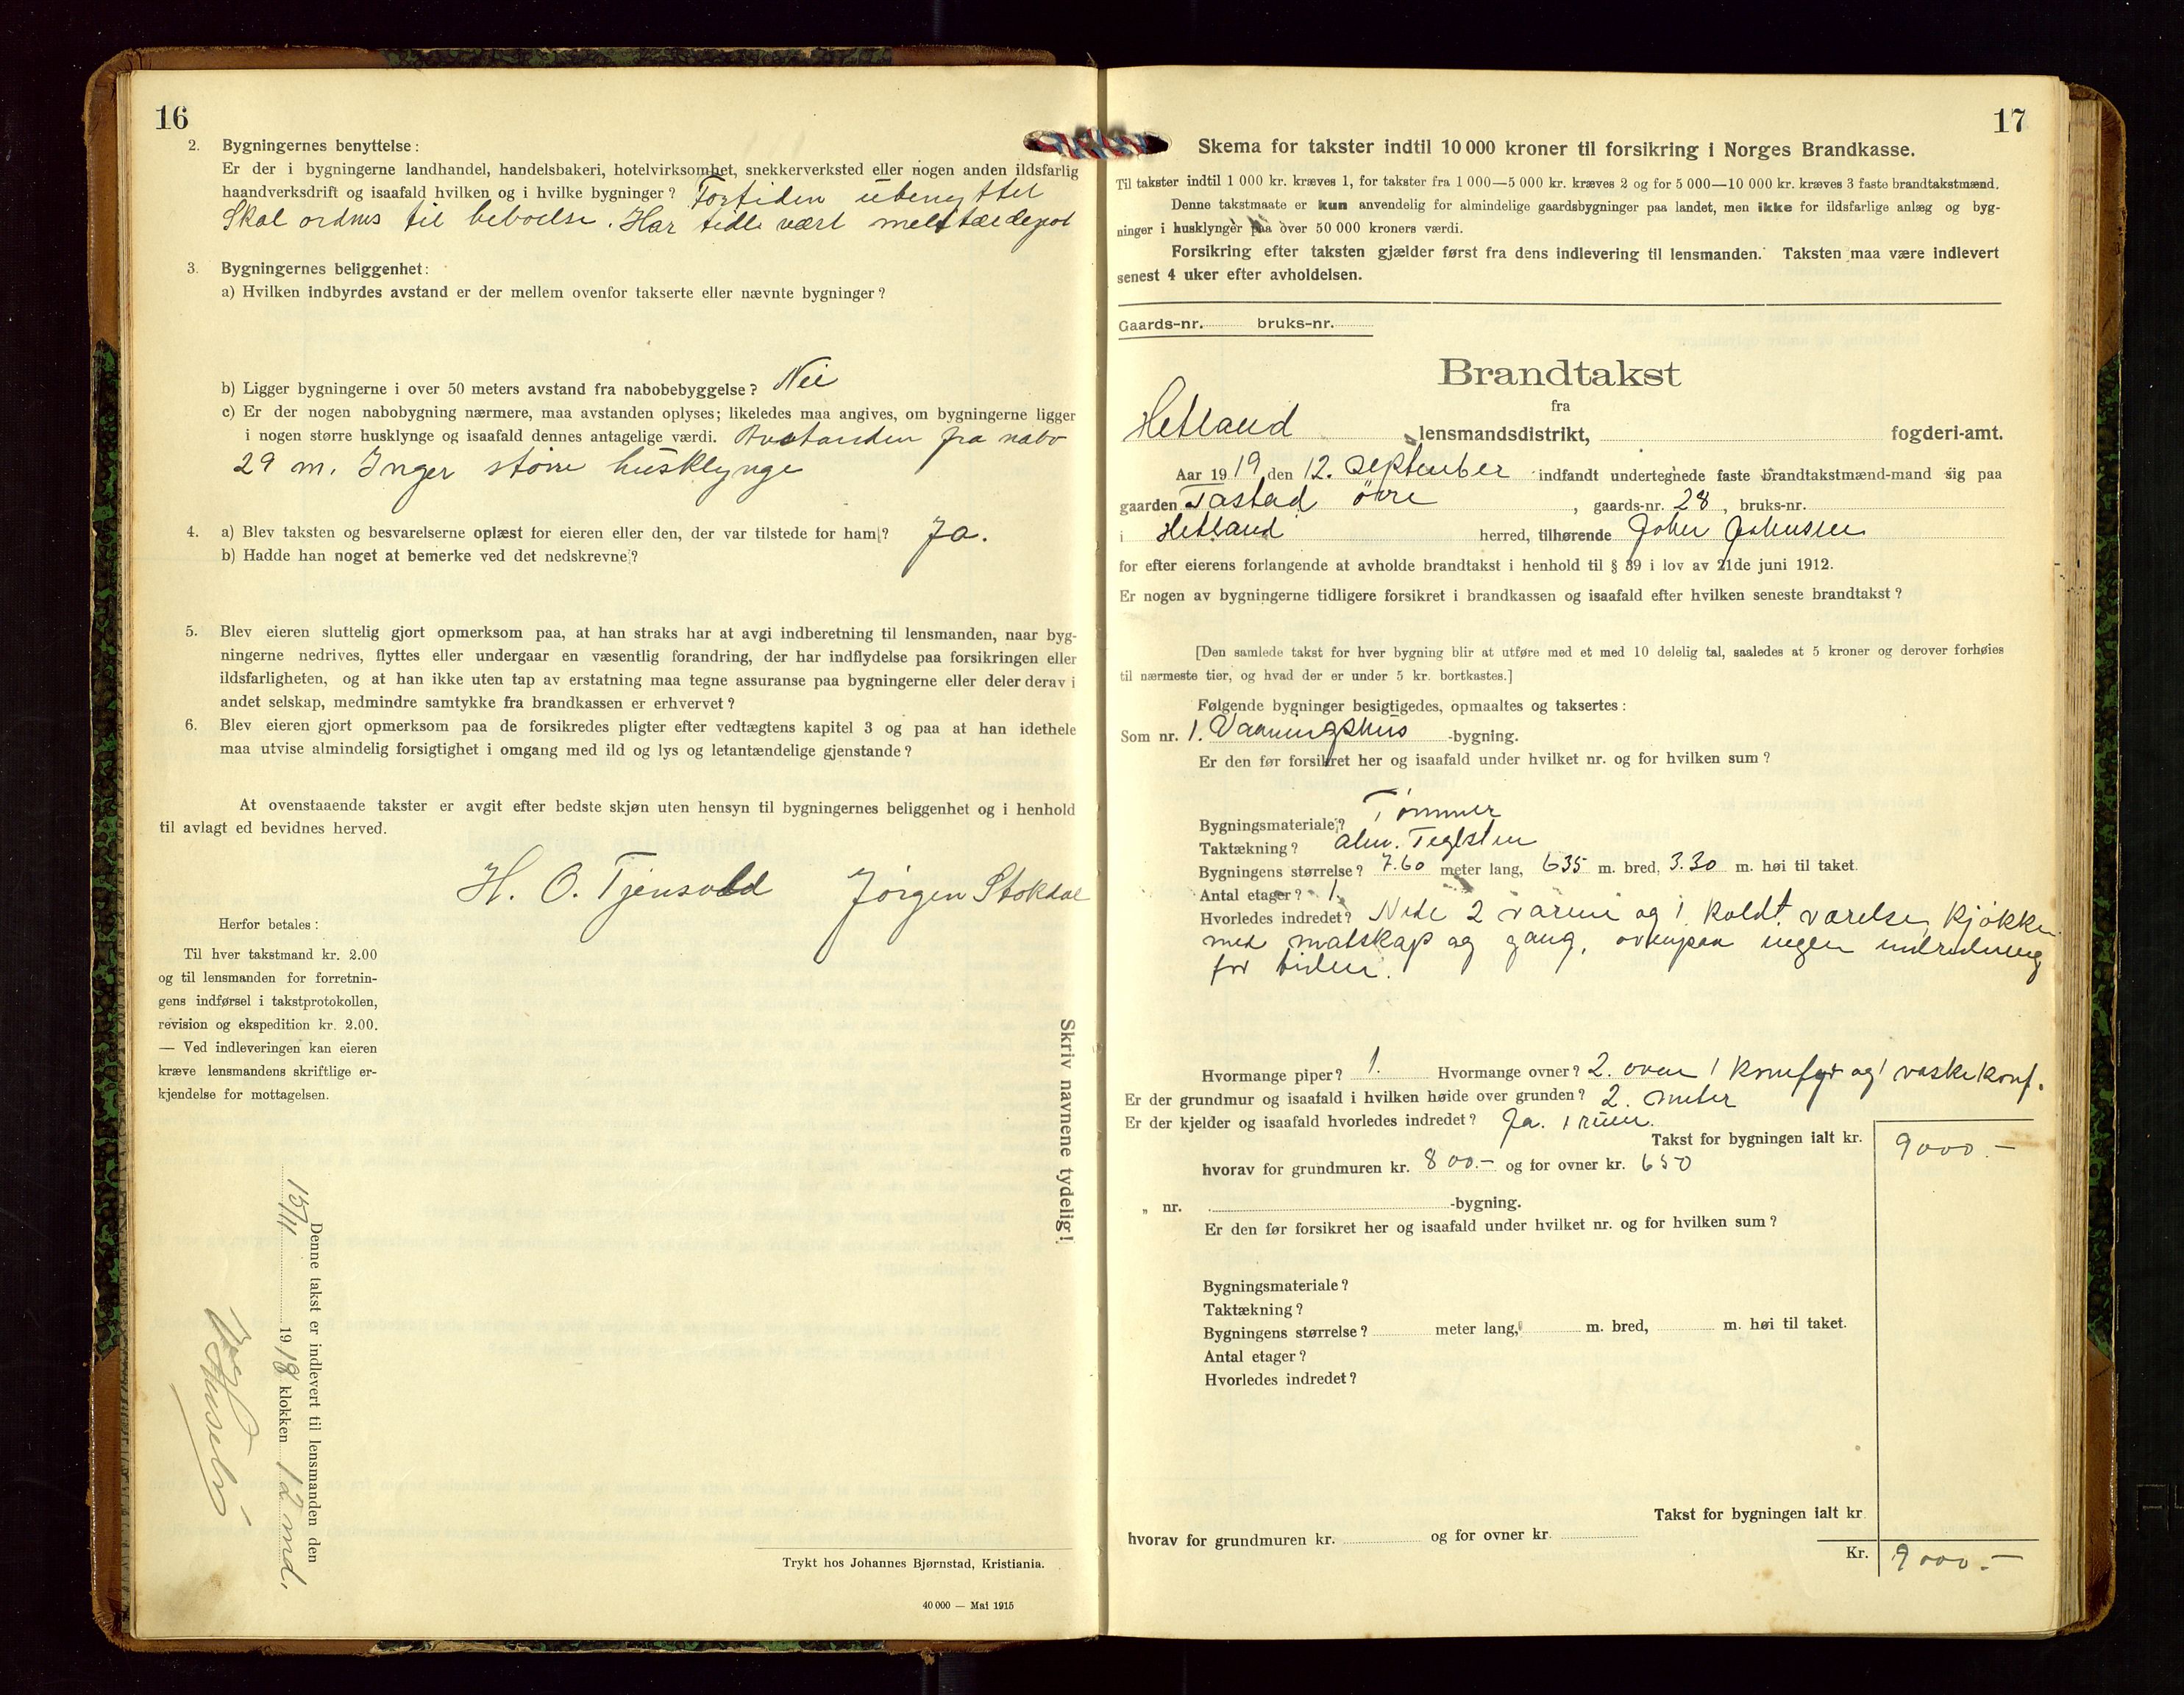 16
2. Bygningernes benyttelse:
Er der i bygningerne landhandel, handelsbakeri, hotelvirksomhet, snekkerverksted eller nogen anden ildsfarlig
haandverksdrift og isaafald hvilken og i hvilke bygninger? Fortiden ubenyttet
Skal ordnes til beboelse. Har tidl. vært
3. Bygningernes beliggenhet:
a) Hvilken indbyrdes avstand er der mellem ovenfor takserte eller nævnte bygninger?
b) Ligger bygningerne i over 50 meters avstand fra nabobebyggelse? Nei
c) Er der nogen nabobygning nærmere, maa avstanden oplyses; likeledes maa angives, om bygningerne ligger
i nogen større husklynge og isaafald dennes antagelige værdi. Avstanden fra nabo
29 m. Inger større husklynge
4. a) Blev taksten og besvarelserne oplæst for eieren eller den, der var tilstede for ham? Ja.
b) Hadde han noget at bemerke ved det nedskrevne?
5. Blev eieren sluttelig gjort opmerksom paa, at han straks har at avgi indberetning til lensmanden, naar byg-
ningerne nedrives, flyttes eller undergaar en væsentlig forandring, der har indflydelse paa forsikringen eller
ildsfarligheten, og at han ikke uten tap av erstatning maa tegne assuranse paa bygningerne eller deler derav i
andet selskap, medmindre samtykke fra brandkassen er erhvervet?
6. Blev eieren gjort opmerksom paa de forsikredes pligter efter vedtægtens kapitel 3 og paa at han idethele
maa utvise almindelig forsigtighet i omgang med ild og lys og letantændelige gjenstande?
At ovenstaaende takster er avgit efter bedste skjøn uten hensyn til bygningernes beliggenhet og i henhold
til avlagt ed bevidnes herved.
H. O. Tjensvold Jörgen Stokdal
Herfor betales:
Til hver takstmand kr. 2.00
og til lensmanden for forretnin-
gens indførsel i takstprotokollen,
revision og ekspedition kr. 2.00.
— Ved indleveringen kan eieren
kræve lensmandens skriftlige er-
kjendelse for mottagelsen.
Skriv navnene tydelig!
Denne takst er indlevert til lensmanden den
15/11 1918 klokken 12 md.
Trykt hos Johannes Bjørnstad, Kristiania.
40 000 — Mai 1915
17
Skema for takster indtil 10 000 kroner til forsikring i Norges Brandkasse.
Til takster indtil 1 000 kr. kræves 1, for takster fra 1 000—5 000 kr. kræves 2 og for 5 000—10 000 kr. kræves 3 faste brandtakstmænd.
Denne takstmaate er kun anvendelig for almindelige gaardsbygninger paa landet, men ikke for ildsfarlige anlæg og byg-
ninger i husklynger paa over 50 000 kroners værdi.
Forsikring efter taksten gjælder først fra dens indlevering til lensmanden. Taksten maa være indlevert
senest 4 uker efter avholdelsen.
Gaards-nr. bruks-nr.
Brandtakst
fra
Hetland lensmandsdistrikt, fogderi-amt.
Aar 1919, den 12. September indfandt undertegnede faste brandtakstmænd-mand sig paa
gaarden Tastad övre, gaards-nr. 28, bruks-nr.
i Hetland herred, tilhørende John Johnsen
for efter eierens forlangende at avholde brandtakst i henhold til § 39 i lov av 21de juni 1912.
Er nogen av bygningerne tidligere forsikret i brandkassen og isaafald efter hvilken seneste brandtakst?
[Den samlede takst for hver bygning blir at utføre med et med 10 delelig tal, saaledes at 5 kroner og derover forhøies
til nærmeste tier, og hvad der er under 5 kr. bortkastes.]
Følgende bygninger besigtigedes, opmaaltes og taksertes:
Som nr. 1. Vaaningshus -bygning.
Er den før forsikret her og isaafald under hvilket nr. og for hvilken sum?
Bygningsmateriale? Tömmer
Taktækning? alm. Teglsten
Bygningens størrelse? 7.60 meter lang, 635 m. bred, 3.30 m. høi til taket.
Antal etager? 1.
Hvorledes indredet? Nede 2 varme og 1 koldt værelse, kjökken
med matskap og gang, ovenpaa ingen indredning
for tiden.
Hvormange piper? 1. Hvormange ovner? 2. ovne 1 komfyr og 1 vaskekomf.
Er der grundmur og isaafald i hvilken høide over grunden? 2. meter
Er der kjelder og isaafald hvorledes indredet? Ja. 1 rum.
Takst for bygningen ialt kr. 9000.-
hvorav for grundmuren kr. 800.- og for ovner kr. 650
„ nr. -bygning.
Er den før forsikret her og isaafald under hvilket nr. og for hvilken sum?
Bygningsmateriale?
Taktækning?
Bygningens størrelse? meter lang, m. bred, m. høi til taket.
Antal etager?
Hvorledes indredet?
Takst for bygningen ialt kr.
hvorav for grundmuren kr. og for ovner kr.
Kr. 9000.-